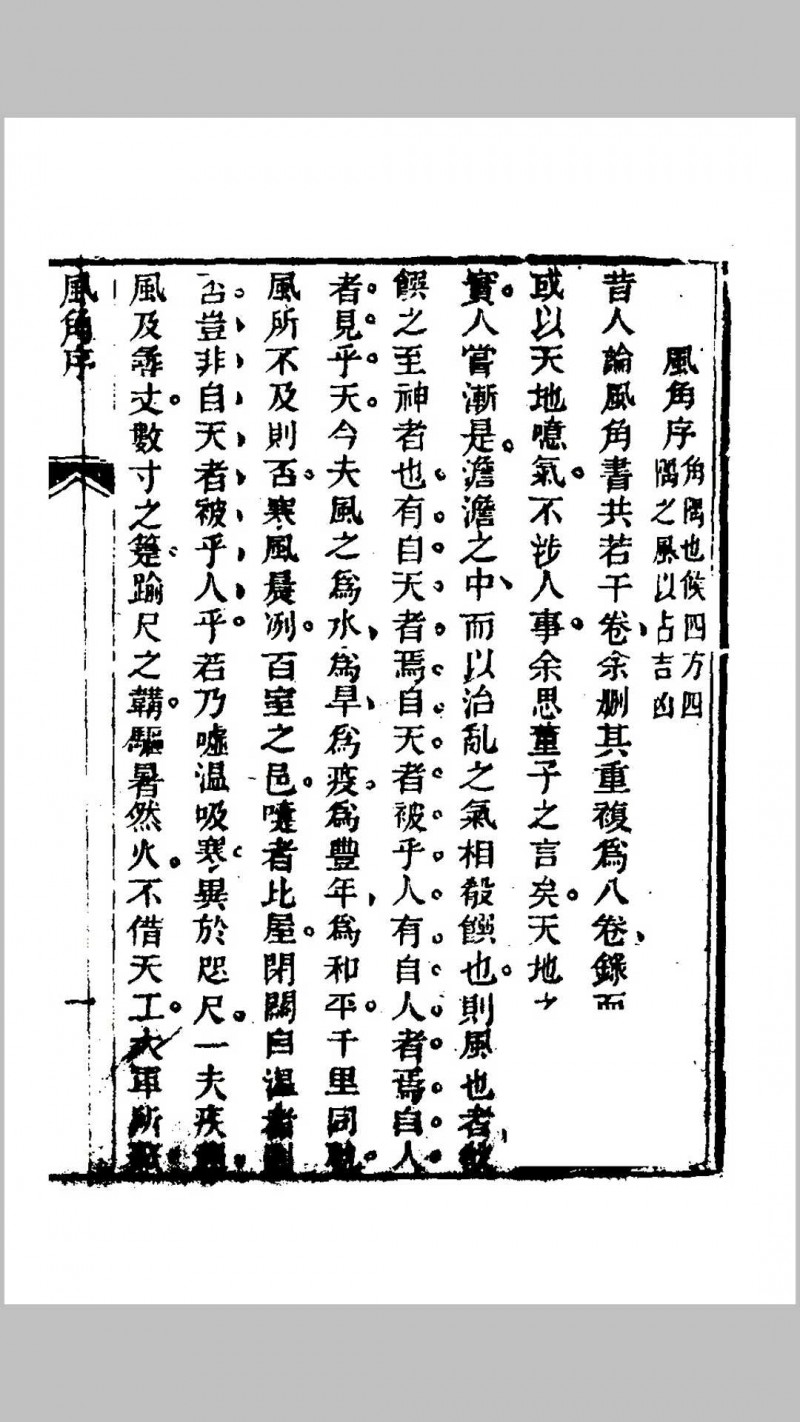 風角序角隅也候四方四
隅之風以占吉凶
昔人論風角書共若干卷余刪其重複爲八卷錄而
或以天地噫氣不涉人事余思董子之言矣天地之
實人嘗漸是澹澹之中而以治亂之氣相殽饌也則風也者
饌之至神者也有自天者焉自天者被乎人有自人者焉自人
者見乎天今夫風之爲水爲旱爲疫爲豐年爲和平千里同
風所不及則否寒風晨冽百室之邑嚏者比屋閉關自溫者則
否豈非自天者被乎人乎若乃噓溫吸寒異於咫尺一夫疾
風及尋丈數寸之箑踰尺之鞲驅暑然火不借天工大軍所
風角序
一